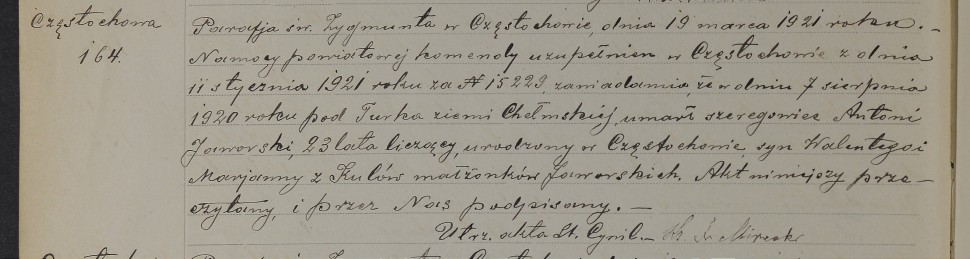 Częstochowa
164.
Parafja św. Zygmunta w Częstochowie, dnia 19 marca 1921 roku. –
Na mocy powiatowej komendy uzupełnień w Częstochowie z dnia
11 stycznia 1921 roku za № 15229, zawiadamia, że w dniu 7 sierpnia
1920 roku pod Turka ziemi Chełmskiéj, umarł szeregowiec Antoni
Jaworski, 23 lata liczący, urodzony w Częstochowie, syn Walentego i
Marjanny z Kulów małżonków Jaworskich. Akt niniejszy prze–
czytany, i przez Nas podpisany. –
Utrz. akta St. Cywil. –